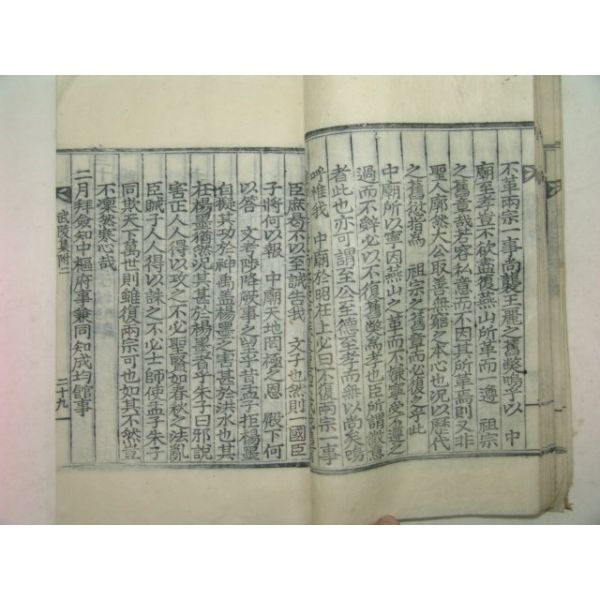 不革兩宗一事尚襲王麗之舊獘嗚乎以 中
廟至孝豈不欲盡復燕山所革而一遵 祖宗
之舊章哉若容私意而不因其所革焉則又非
聖人廓然大公取善無窮之本心也况以歷代
之舊愆指爲 祖宗之舊章而必復之乎此
中廟所以寧因燕山之革而不嫌寧受不遵之
過而不辭必以不復舊獘爲孝也臣所謂微意
者此也亦可謂至公至德至孝而無以尚矣嗚
呼惟我 中廟於昭在上必曰不復兩宗一事
臣庶曷不以至誠告我 文子也然則一國臣
子將何以報 中廟天地罔極之恩 殿下何
以答 文考陟降厥事之留止乎昔孟子拒楊墨
自擬其功於神禹盖楊墨之害甚於洪水也其
在楊墨猶然况其甚於楊墨者乎朱子曰邪說
害正人人得以攻之不必聖賢如春秋之法亂
臣賊子人人得以誅之不必士師使孟子朱子
同欺天下萬世則雖復兩宗可也如其不然豈
不凜然寒心哉
二月拜僉知中樞府事兼同知成均館事
武陵集附二
二十九